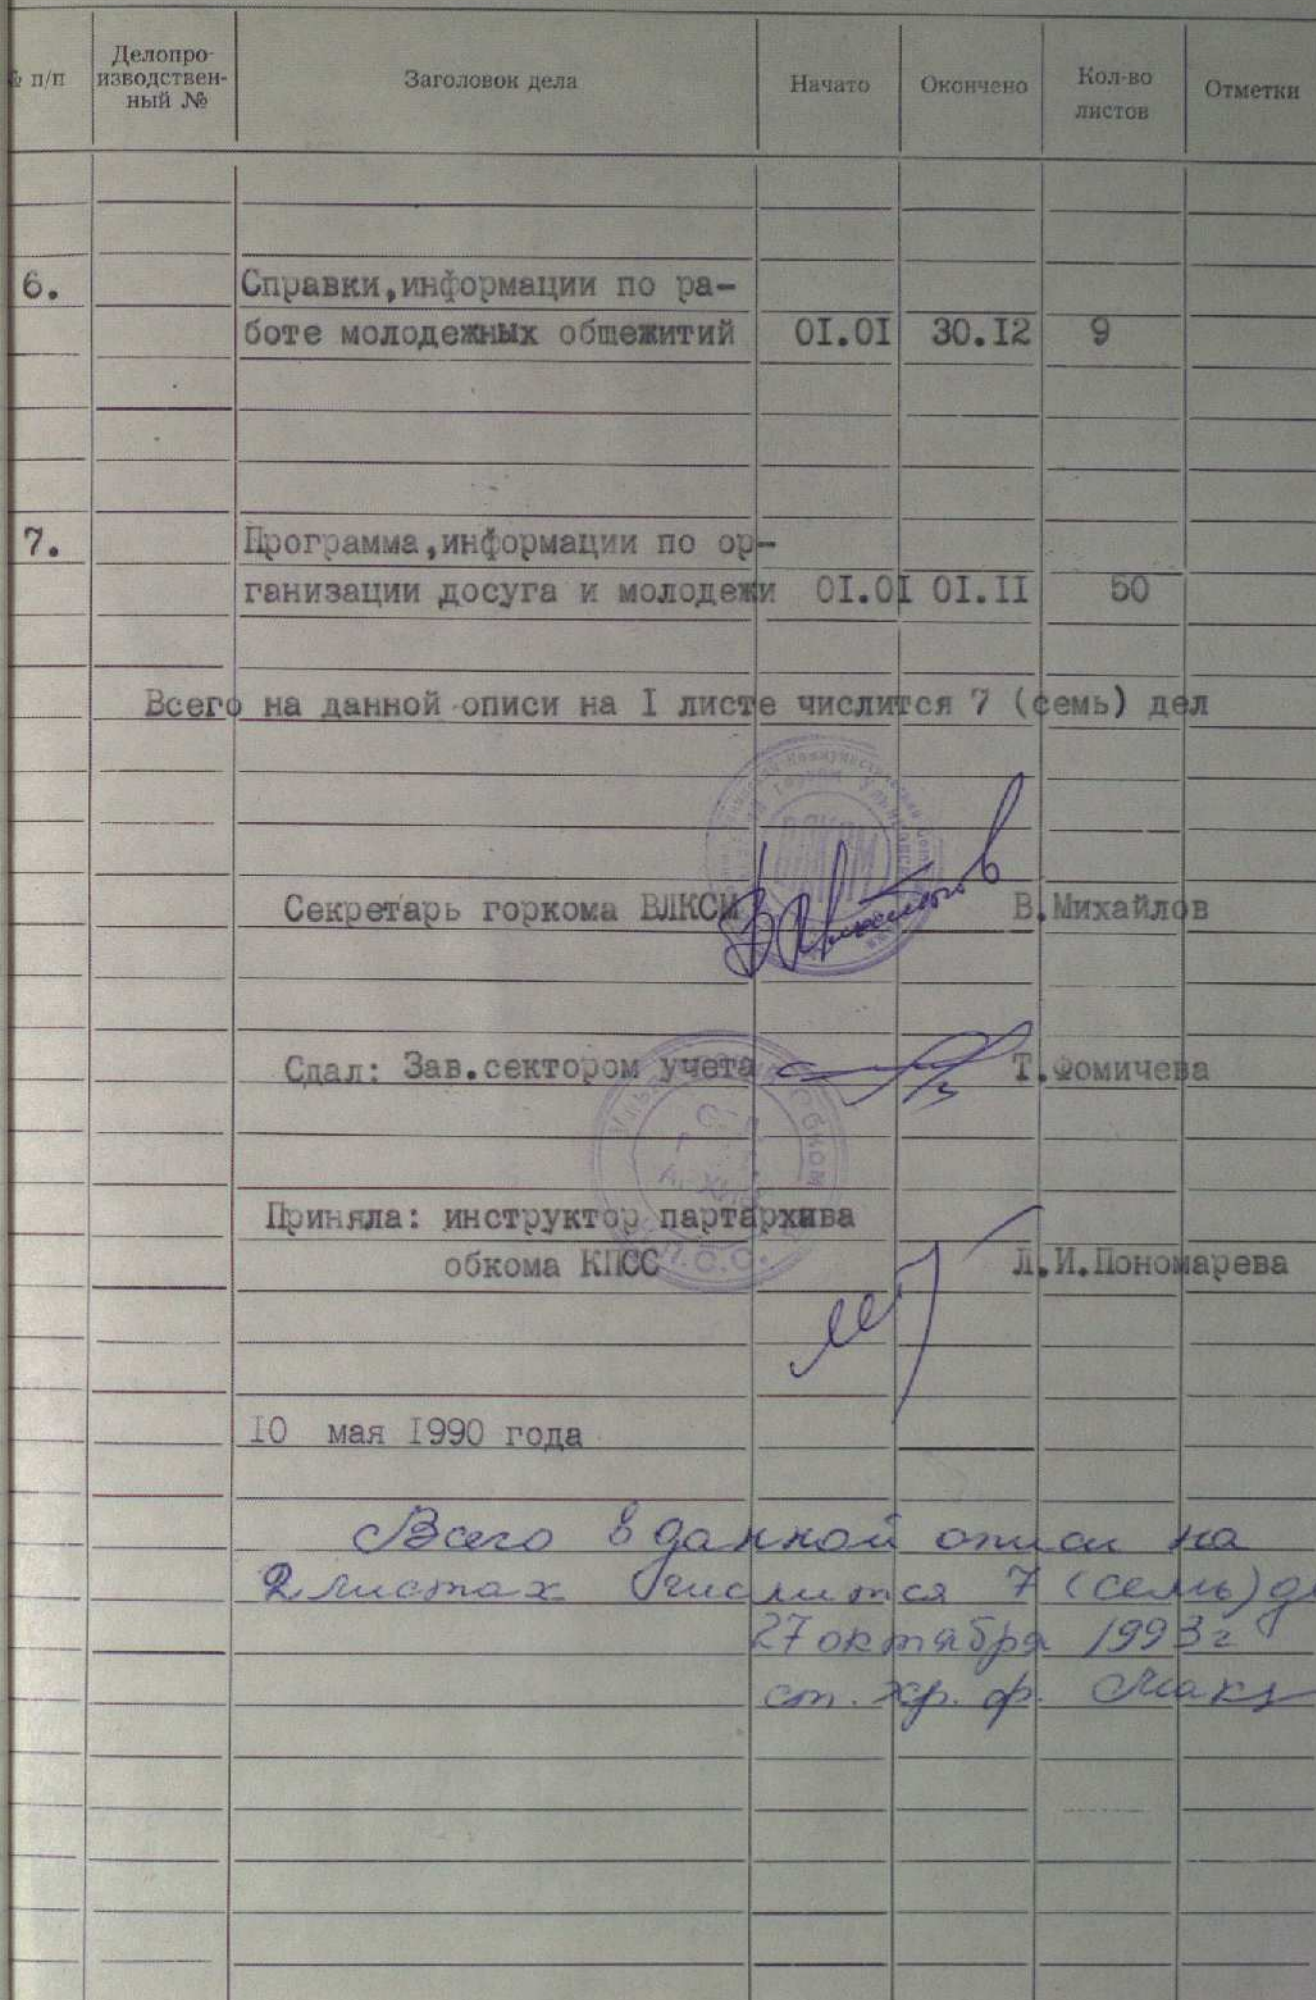 № п/п Делопро-изводствен-ный № Заголовок дела Начато Окончено Кол-во листов Отметки
6. Справки,информации по ра-
боте молодежных общежитий 01.01 30.12 9
7. Программа,информации по ор-
ганизации досуга и молодежи 01.01 01.11 50
Всего на данной описи на I листе числится 7 (семь) дел
ВЛКСМ
Секретарь горкома ВЛКСМ В.Михайлов
Сдал: Зав.сектором учета Т.Фомичева
Приняла: инструктор партархива
обкома КПСС Л.И.Пономарева
10 мая 1990 года
Всего в данной описи на
2 листах числится 7 (семь) д
27 октября 1993г
ст. хр. ф.